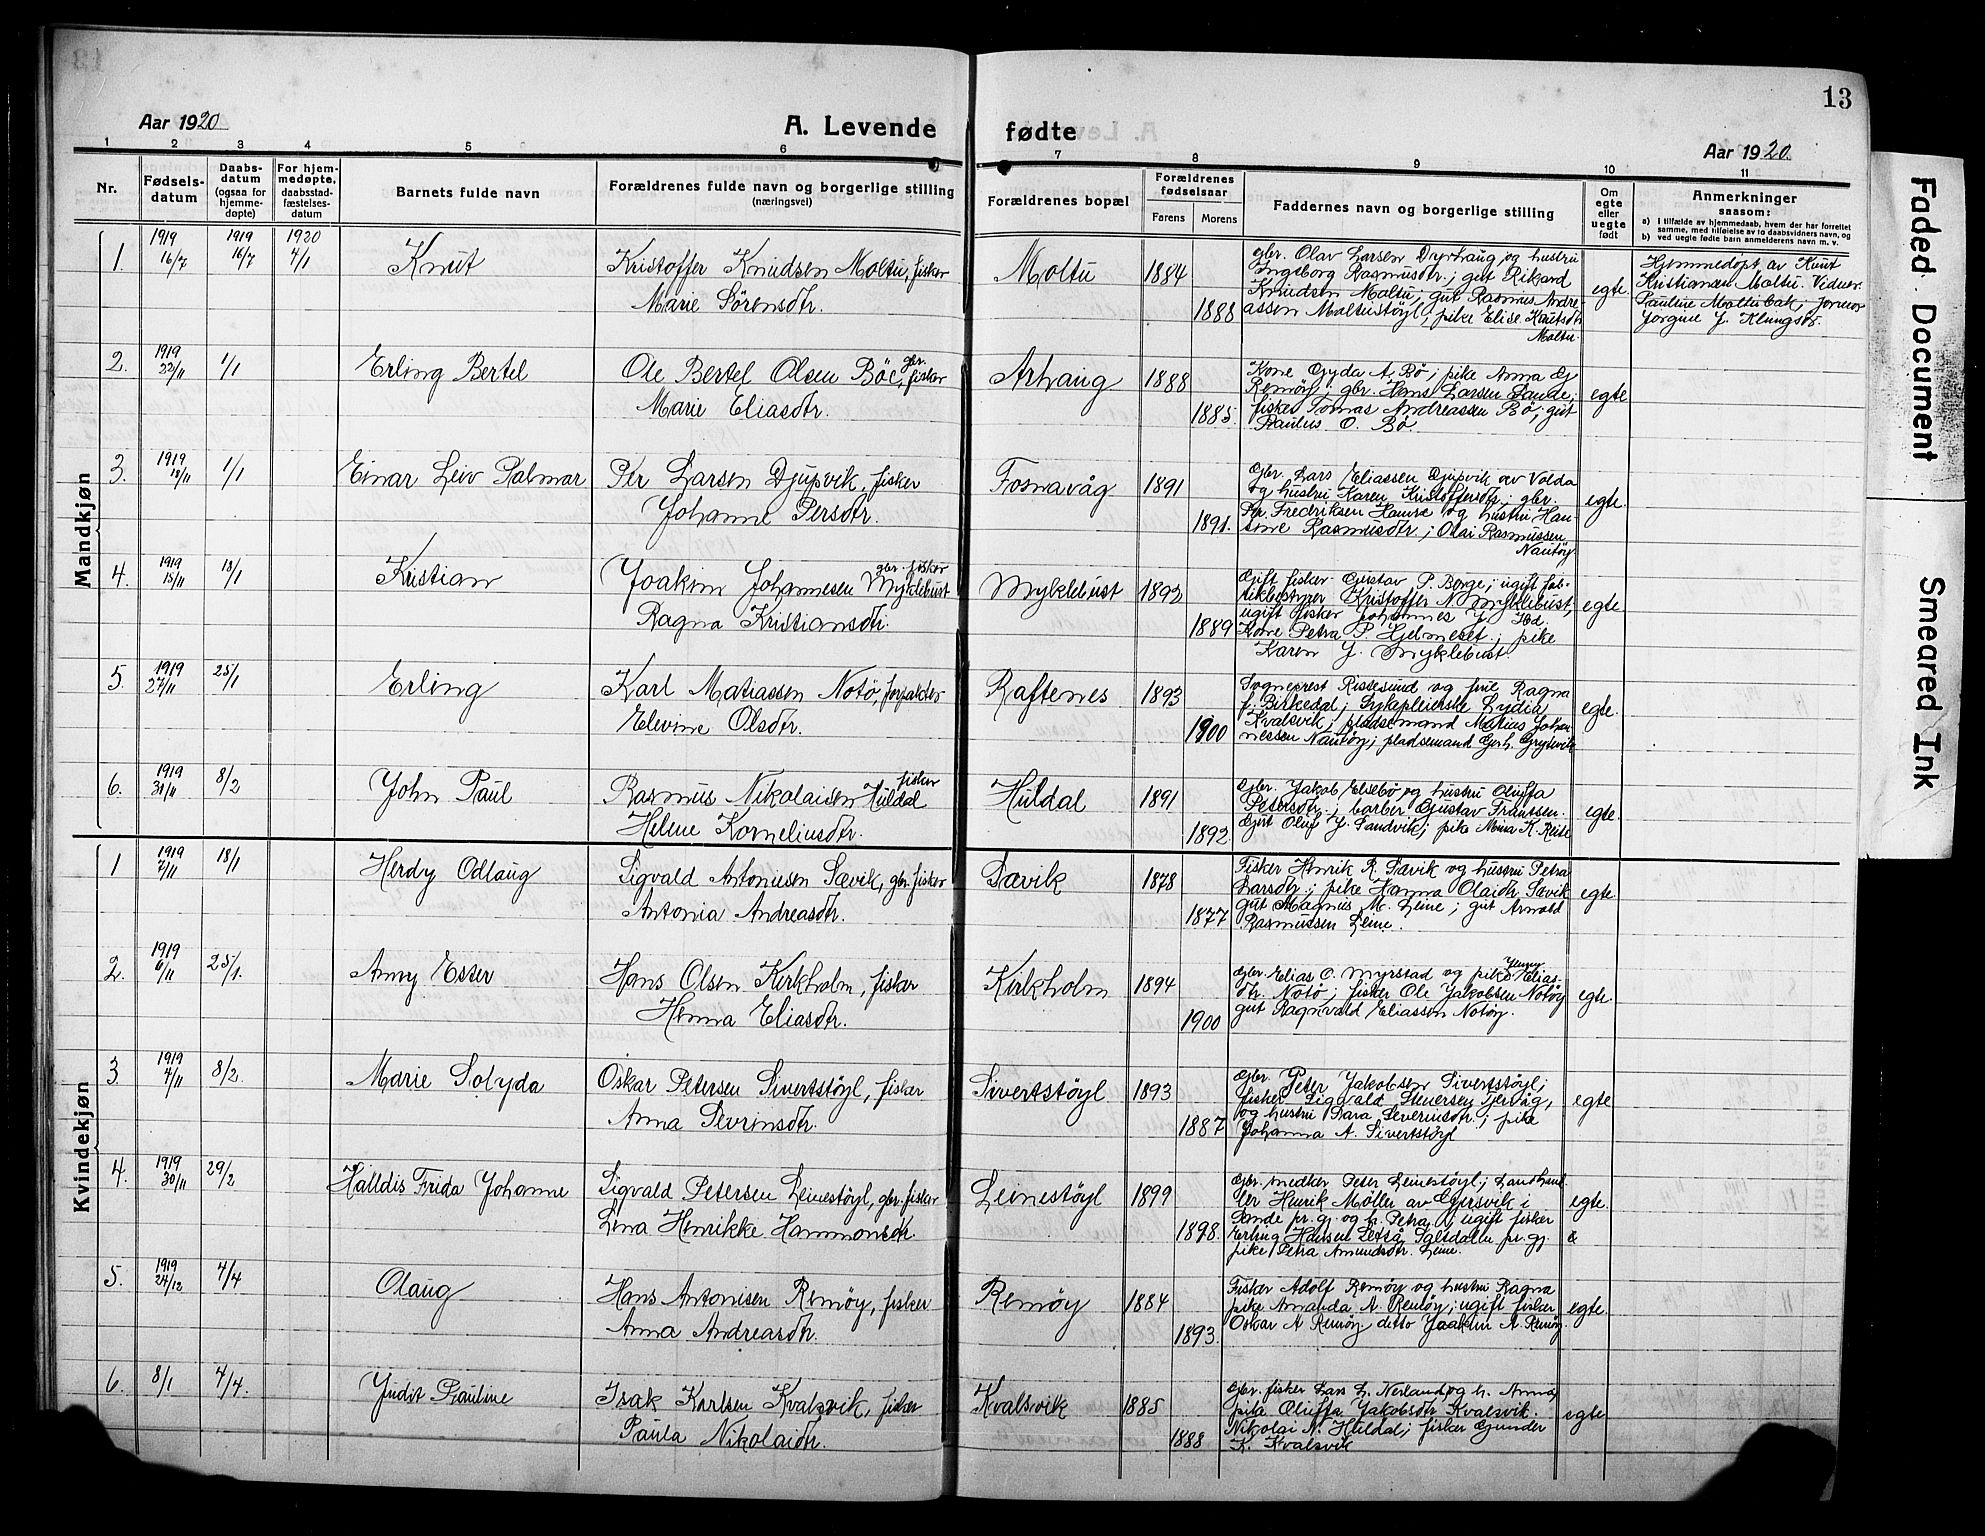 13
Aar 1920
A. Levende fødte
Aar 1920.
1 2 3 4 5 6 7 8 9 10 11
Nr.
Fødsels-
datum
Daabs-
datum
(ogsaa for
hjemme-
døpte)
For hjem-
medøpte,
daabsstad-
fæstelses-
datum
Barnets fulde navn
Forældrenes fulde navn og borgerlige stilling
(næringsvei)
Forældrenes bopæl
Forældrenes
fødselsaar
Farens
Morens
Faddernes navn og borgerlige stilling
Om
egte
eller
uegte
født
Anmerkninger
saasom:
a) I tilfælde av hjemmedaab, hvem der har forrettet
samme, med tilføielse av to daabsvidners navn, og
b) ved uegte fødte barn anmelderens navn m. v.
Mandkjøn
1. 1919 16/7 1919 16/7 1920 4/1 Knut
Kristoffer Knudsen Moltu, fisker
Marie Sörensdtr.
Moltu 1884 1888
gbr. Olav Larsen Dyrhaug og hustru
Ingeborg Rasmusdtr.; gut Rikard
Knudsen Moltu; gut Rasmus Andre-
assen Moltustöyl; pike Elise Knutsdtr
Moltu.
egte.
Hjemmedöpt av Knut
Kristiansen Moltu. Vidner:
Pauline Moltubak, jormor
Jorgine J. Klungsdr.
2. 1919 22/11 1/1 Erling Bertel
Ole Bertel Olsen Böe, gbr. fisker
Marie Eliasdtr.
Arhaug 1888 1885.
Kone Gyda A. Bö; pike Anna G
Remöy; gbr. Hans Larsen Sande;
fisker Tomas Andreassen Bö; gut
Paulus O. Bö.
egte
3. 1919 18/11 1/1 Einar Leiv Palmar
Per Larsen Djupvik, fisker
Johanne Persdtr.
Fosnavåg 1891 1891.
Gbr. Lars Eliassen Djupvik av Volda
og hustru Karen Kristoffersdtr.; gbr.
Per Fredriksen Hamre og hustru Han-
sine Rasmusdtr.; Olai Rasmussen
Nautöy.
egte.
4. 1919 15/11 18/1 Kristian
Joakim Johannesen Myklebust gbr. fisker
Ragna Kristiansdtr.
Myklebust 1892 1889
Gift fisker Gustav P. Berge; ugift fab-
rikbestyrer Kristoffer N Myklebust,
ugift fisker Johannes J Hd.
Kone Petra P. Hjelmeset; pike
Karen J. Myklebust.
egte
5. 1919 27/11 25/1 Erling
Karl Matiassen Notö, forpakter
Elevine Olsdtr.
Raftenes 1893 1900
Sogneprest Ristesund og frue Ragna
f. Birkedal; Sykepleierske Lydia
Kvalsvik; pladsemand Matias Johan-
nessen Nautöy; pladsemand Gerh. Grytevik
egte.
6. 1919 30/11 8/2 John Paul
Rasmus Nikolaisen Huldal fisker
Helene Korneliusdtr.
Huldal 1891 1892.
Gbr. Jakob Elsebö og hustru Oluffa
Petersdtr.; barber Gustav Frantsen
Gut Oluf J. Sandvik; pike Mina K. Reite
egte.
Kvindekjøn
1 1919 7/11 18/1 Herdy Odlaug
Sigvald Antonsen Sævik, gbr. fisker
Antonia Andreasdtr.
Sævik 1878 1877
Fisker Henrik R. Sævik og hustru Petra
Larsdtr.; pike Hanna Olaidtr. Sævik
gut Magnus M. Leine; gut Arnold
Rasmussen Leine.
egte.
2. 1919 6/11 25/1. Anny Ester
Hans Olsen Kirkholm, fisker
Henna Eliasdtr.
Kirkholm 1894 1900
gbr. Elias O. Myrstad og pike Jenny Elias-
dtr. Notö; fisker Ole Jakobsen Notöy
gut Ragnvald Eliassen Notöy.
egte.
3. 1919 4/11 8/2. Marie Solyda
Oskar Petersen Sivertstöyl, fisker
Anna Sevrinsdtr.
Sivertstöyl 1893 1887
Gbr. Peter Jakobsen Sivertstöyl;
fisker Sigvald Sjervåg,
og hustru Sara Severinsdtr.; pike
Johanna A. Sivertstöyl
egte
4. 1919 30/11 29/2 Halldis Frida Johanne
Sigvald Petersen Leinestöyl, gbr. fisker
Lina Henrikke Hammonsdtr.
Leinestöyl 1899 1898.
Gbr. snedker Peter Leinestöyl; Landhand-
ler Henrik Möller av Gjersvik i
Sande pr. gj. og h. Petra; ugift fisker
Erling Hansen Setså Saltdalen pr. gj.
pike Petra Amundsdtr. Leine.
egte.
5. 1919 24/12 4/4 Olaug
Hans Antonisen Remöy, fisker
Anna Andreasdtr.
Remöy 1884 1893.
Fisker Adolf Remöy og hustru Ragna
pike Amanda A. Remöy; ugift fisker
Oskar A Remöy ditto Joakim A. Remöy
egte.
6. 8/1 4/4. Judit Pauline
Isak Karlsen Kvalsvik, fisker
Paula Nikolaidtr.
Kvalsvik 1885 1888
Gbr. fisker Lars L. Nerland og h. Anna,
pike Oluffa Jakobsdtr Kvalsvik.
Nikolai N. Huldal; fisker Gunder
K. Kvalsvik
egte
Faded Document
Smeared Ink